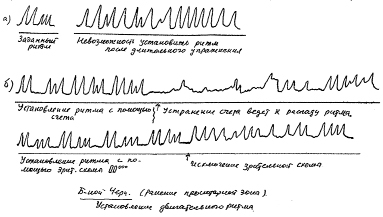 а)
Заданный ритм
Невозможность установить ритм после длительного упражнения
б)
Установление ритма с помощью счета
Устранение счета ведет к распаду ритма
Установление ритма с помощью зрит. схемы
Исключение зрительной схемы
Б-ной Черн. (Ранение премоторной зоны).
Установление двигательного ритма